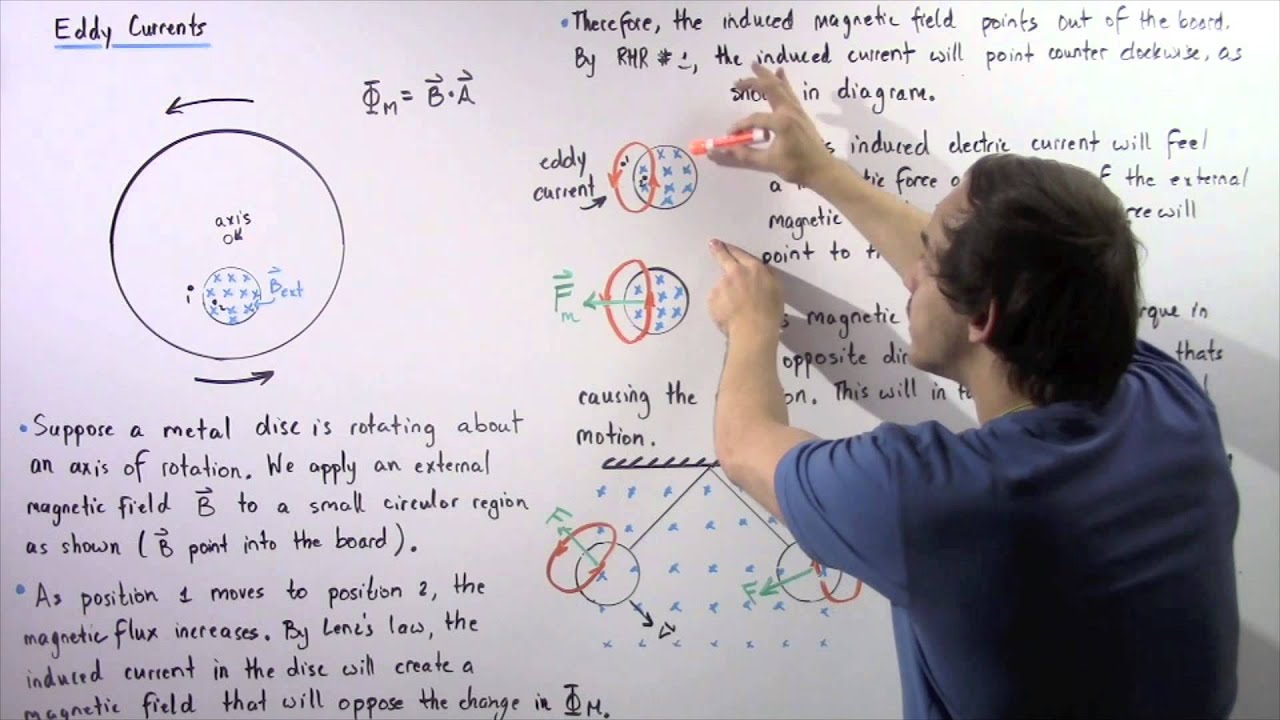 Eddy Currents
Φ_M = B⃗·A⃗
axis
B⃗ext
1
2
• Suppose a metal disc is rotating about
an axis of rotation. We apply an external
magnetic field B⃗ to a small circular region
as shown (B⃗ point into the board).
• As position 1 moves to position 2, the
magnetic flux increases. By Lenz's law, the
induced current in the disc will create a
magnetic field that will oppose the change in Φ_M.
• Therefore, the induced magnetic field points out of the board.
By RHR #1, the induced current will point counter clockwise, as
in diagram.
eddy
current
induced electric current will feel
a the external
magnetic will
point to
F⃗m
magnetic in
opposite thats
causing the This will in
motion.
F
F
v